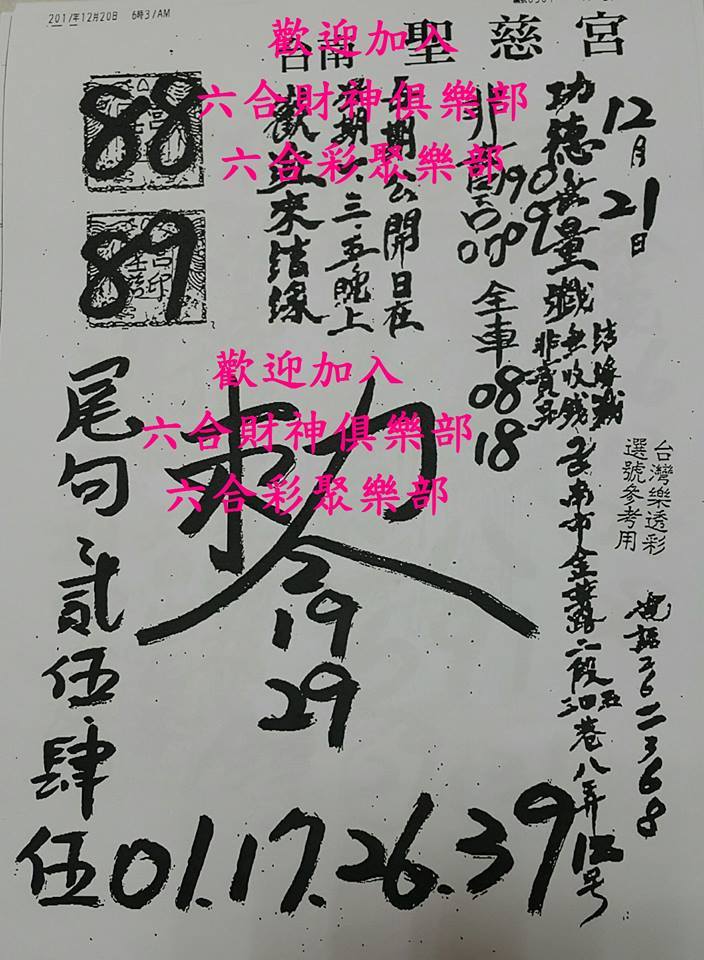 2017年12月20日 6時37AM
台南 聖慈宮
12月21日
功德無量
結緣
無收錢
非賣品
台灣樂透彩
選號參考用
電話2622368
台南市金華路二段
巷八弄12号
全車
08
18
每期公開日在
星期一三五晚上
歡迎來結緣
88
89
敕令
19
29
尾句
貳伍肆伍
01.17.26.39
歡迎加入
六合財神俱樂部
六合彩聚樂部
歡迎加入
六合財神俱樂部
六合彩聚樂部